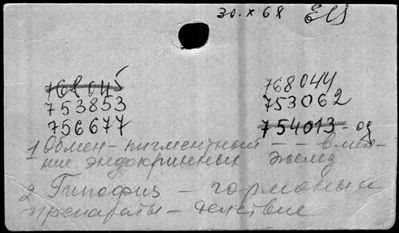 30.X 68
768045 768044
753853 753062
756677 754013 - од
1 Обмен - пигментный - - влия-
ние эндокринных желез
2 Гипофиз - гормоны и
препараты - действие